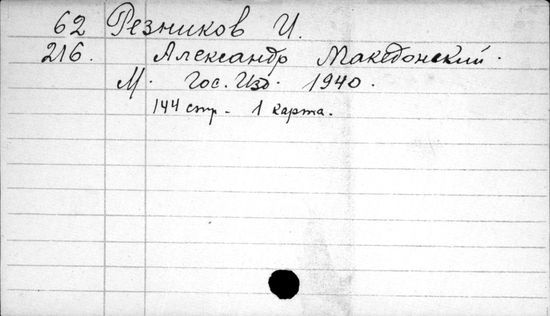 62 Резников И.
216. Александр Македонский.
М. Гос. Изд. 1940.
144 стр. - 1 карта.